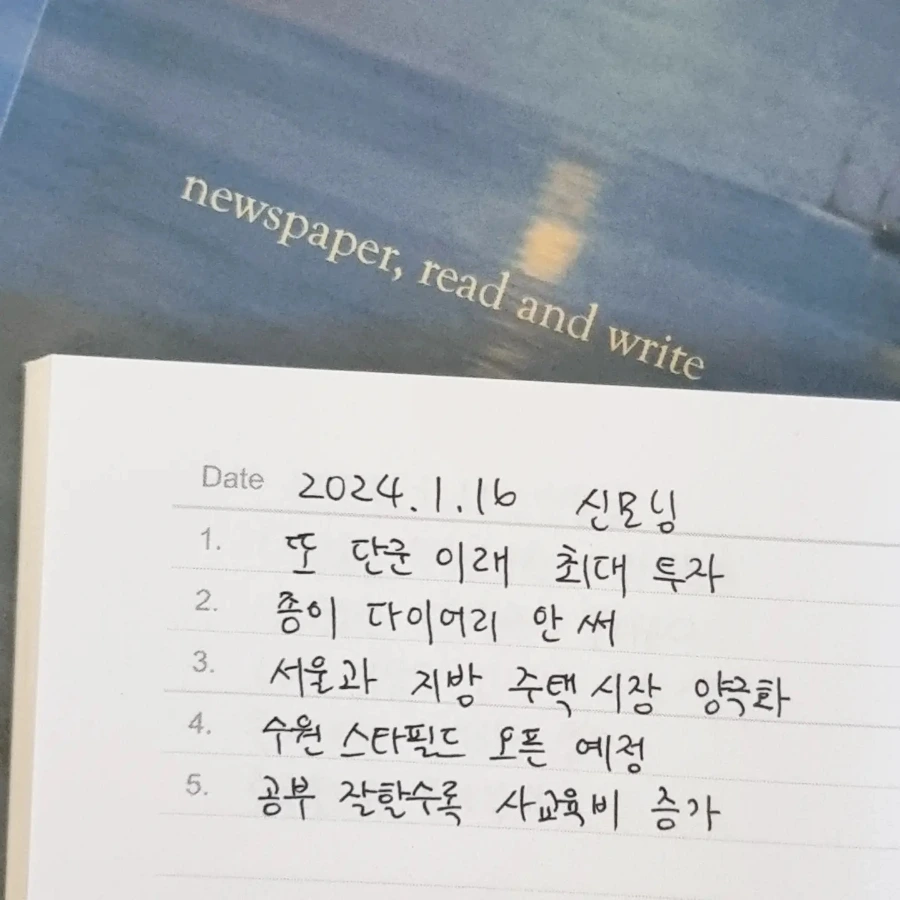 newspaper, read and write
Date 2024.1.16 신모닝
1. 또 단군 이래 최대 투자
2. 종이 다이어리 안 써
3. 서울과 지방 주택 시장 양극화
4. 수원 스타필드 오픈 예정
5. 공부 잘할수록 사교육비 증가